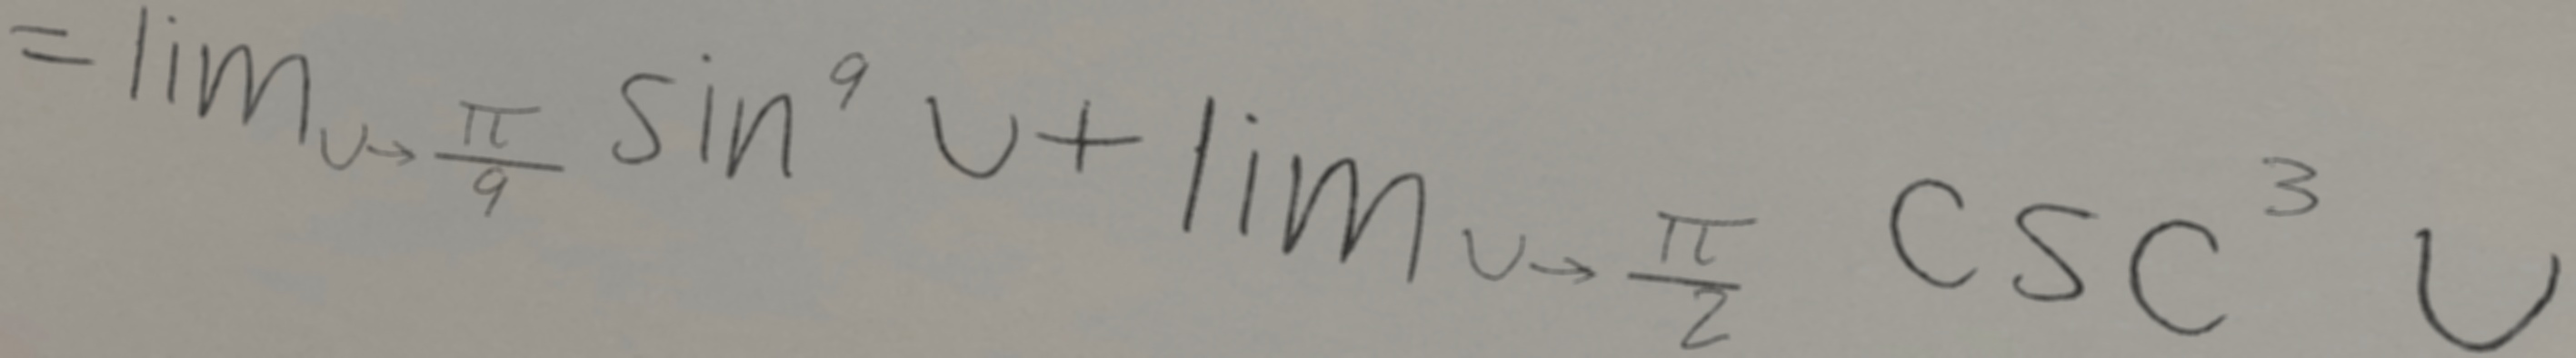 = lim_{u→\frac{π}{9}} sin^9 u + lim_{u→\frac{π}{2}} csc^3 u